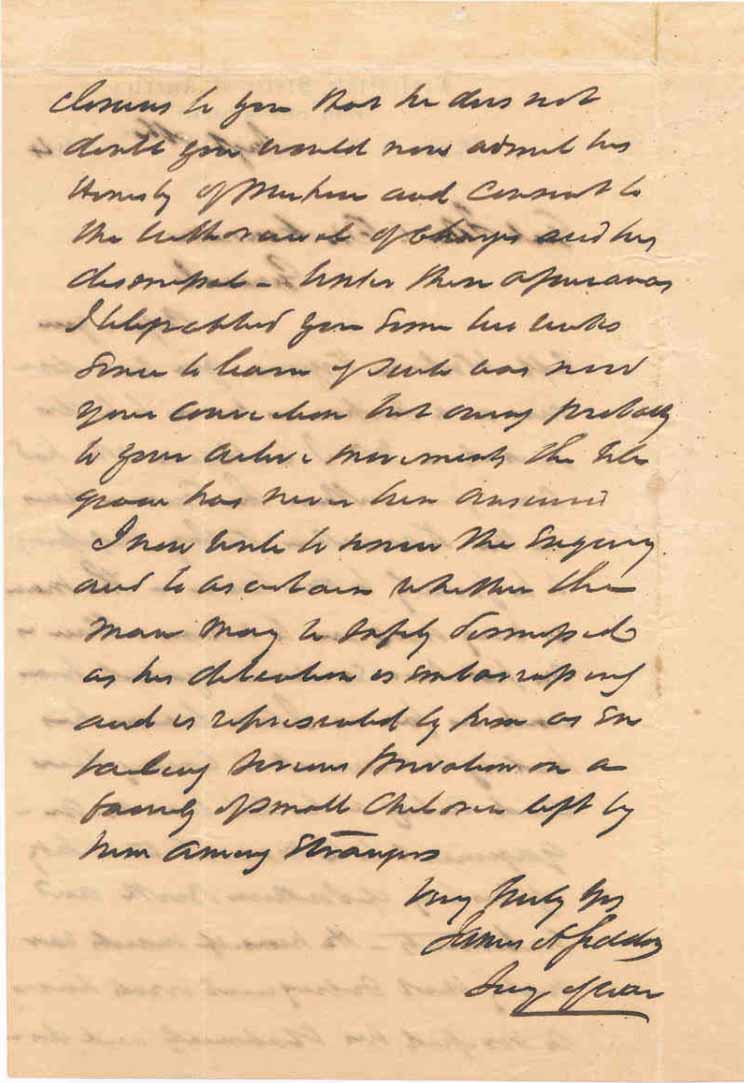 closures to you that he does not
doubt you would now admit his
Honesty of Purpose and Consent to
the withdrawal of charges and his
dismissal - Under these
I telegraphed you some two weeks
since to learn if such was now
your conviction but owing probably
to your active movements the tele
gram has never been answered
I now write to renew the Enquiry
and to ascertain whether the
man may be safely dismissed
as his detention is embarrassing
and is represented by him as en
tailing serious Privation on a
family of small Children left by
him among Strangers
Very Truly Yrs
James A Seddon
Secy of War